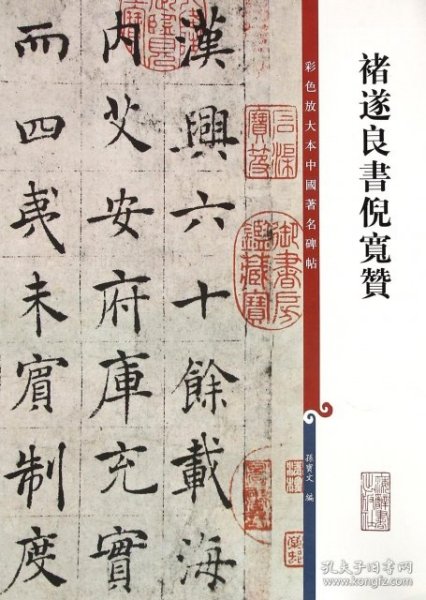 褚遂良書倪寬贊
彩色放大本中國著名碑帖
孫寶文 編
漢興六十餘載海
内艾安府庫充實
而四夷未賓制度
石渠寶笈
御書房鑑藏寶
孔夫子旧书网
www.kongfz.com